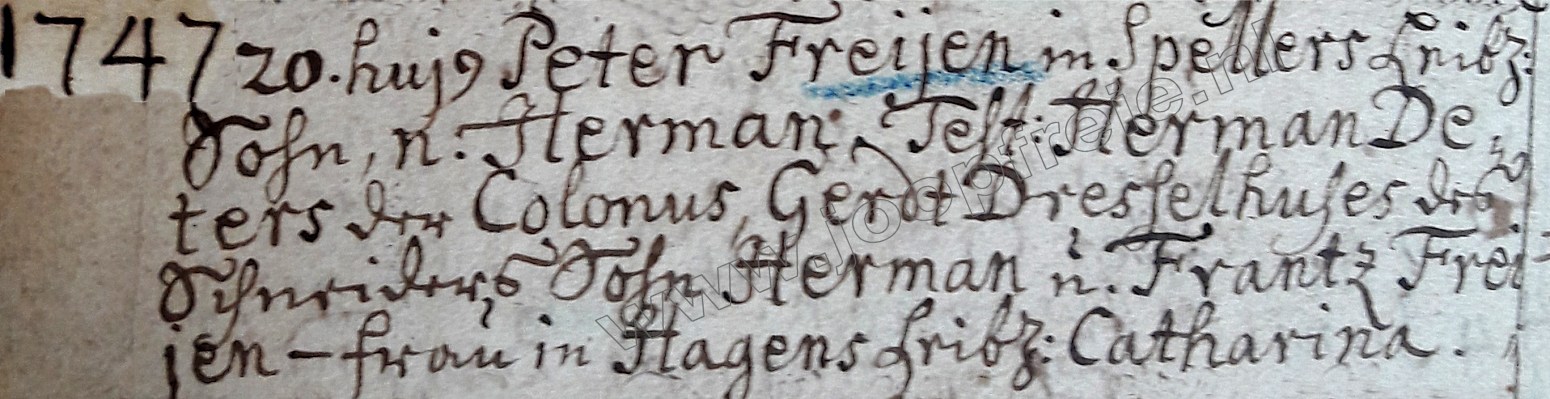 1747 20. hujꝯ Peter Freijen in Spellers Leibz:
Sohn, n. Herman. Test: Herman De-
ters der Colonus, Gerdt Dresselhuses des
Schneiders Sohn Herman u. Frantz Frei-
jen - frau in Hagens Leibz: Catharina.
www.joopfreie.nl